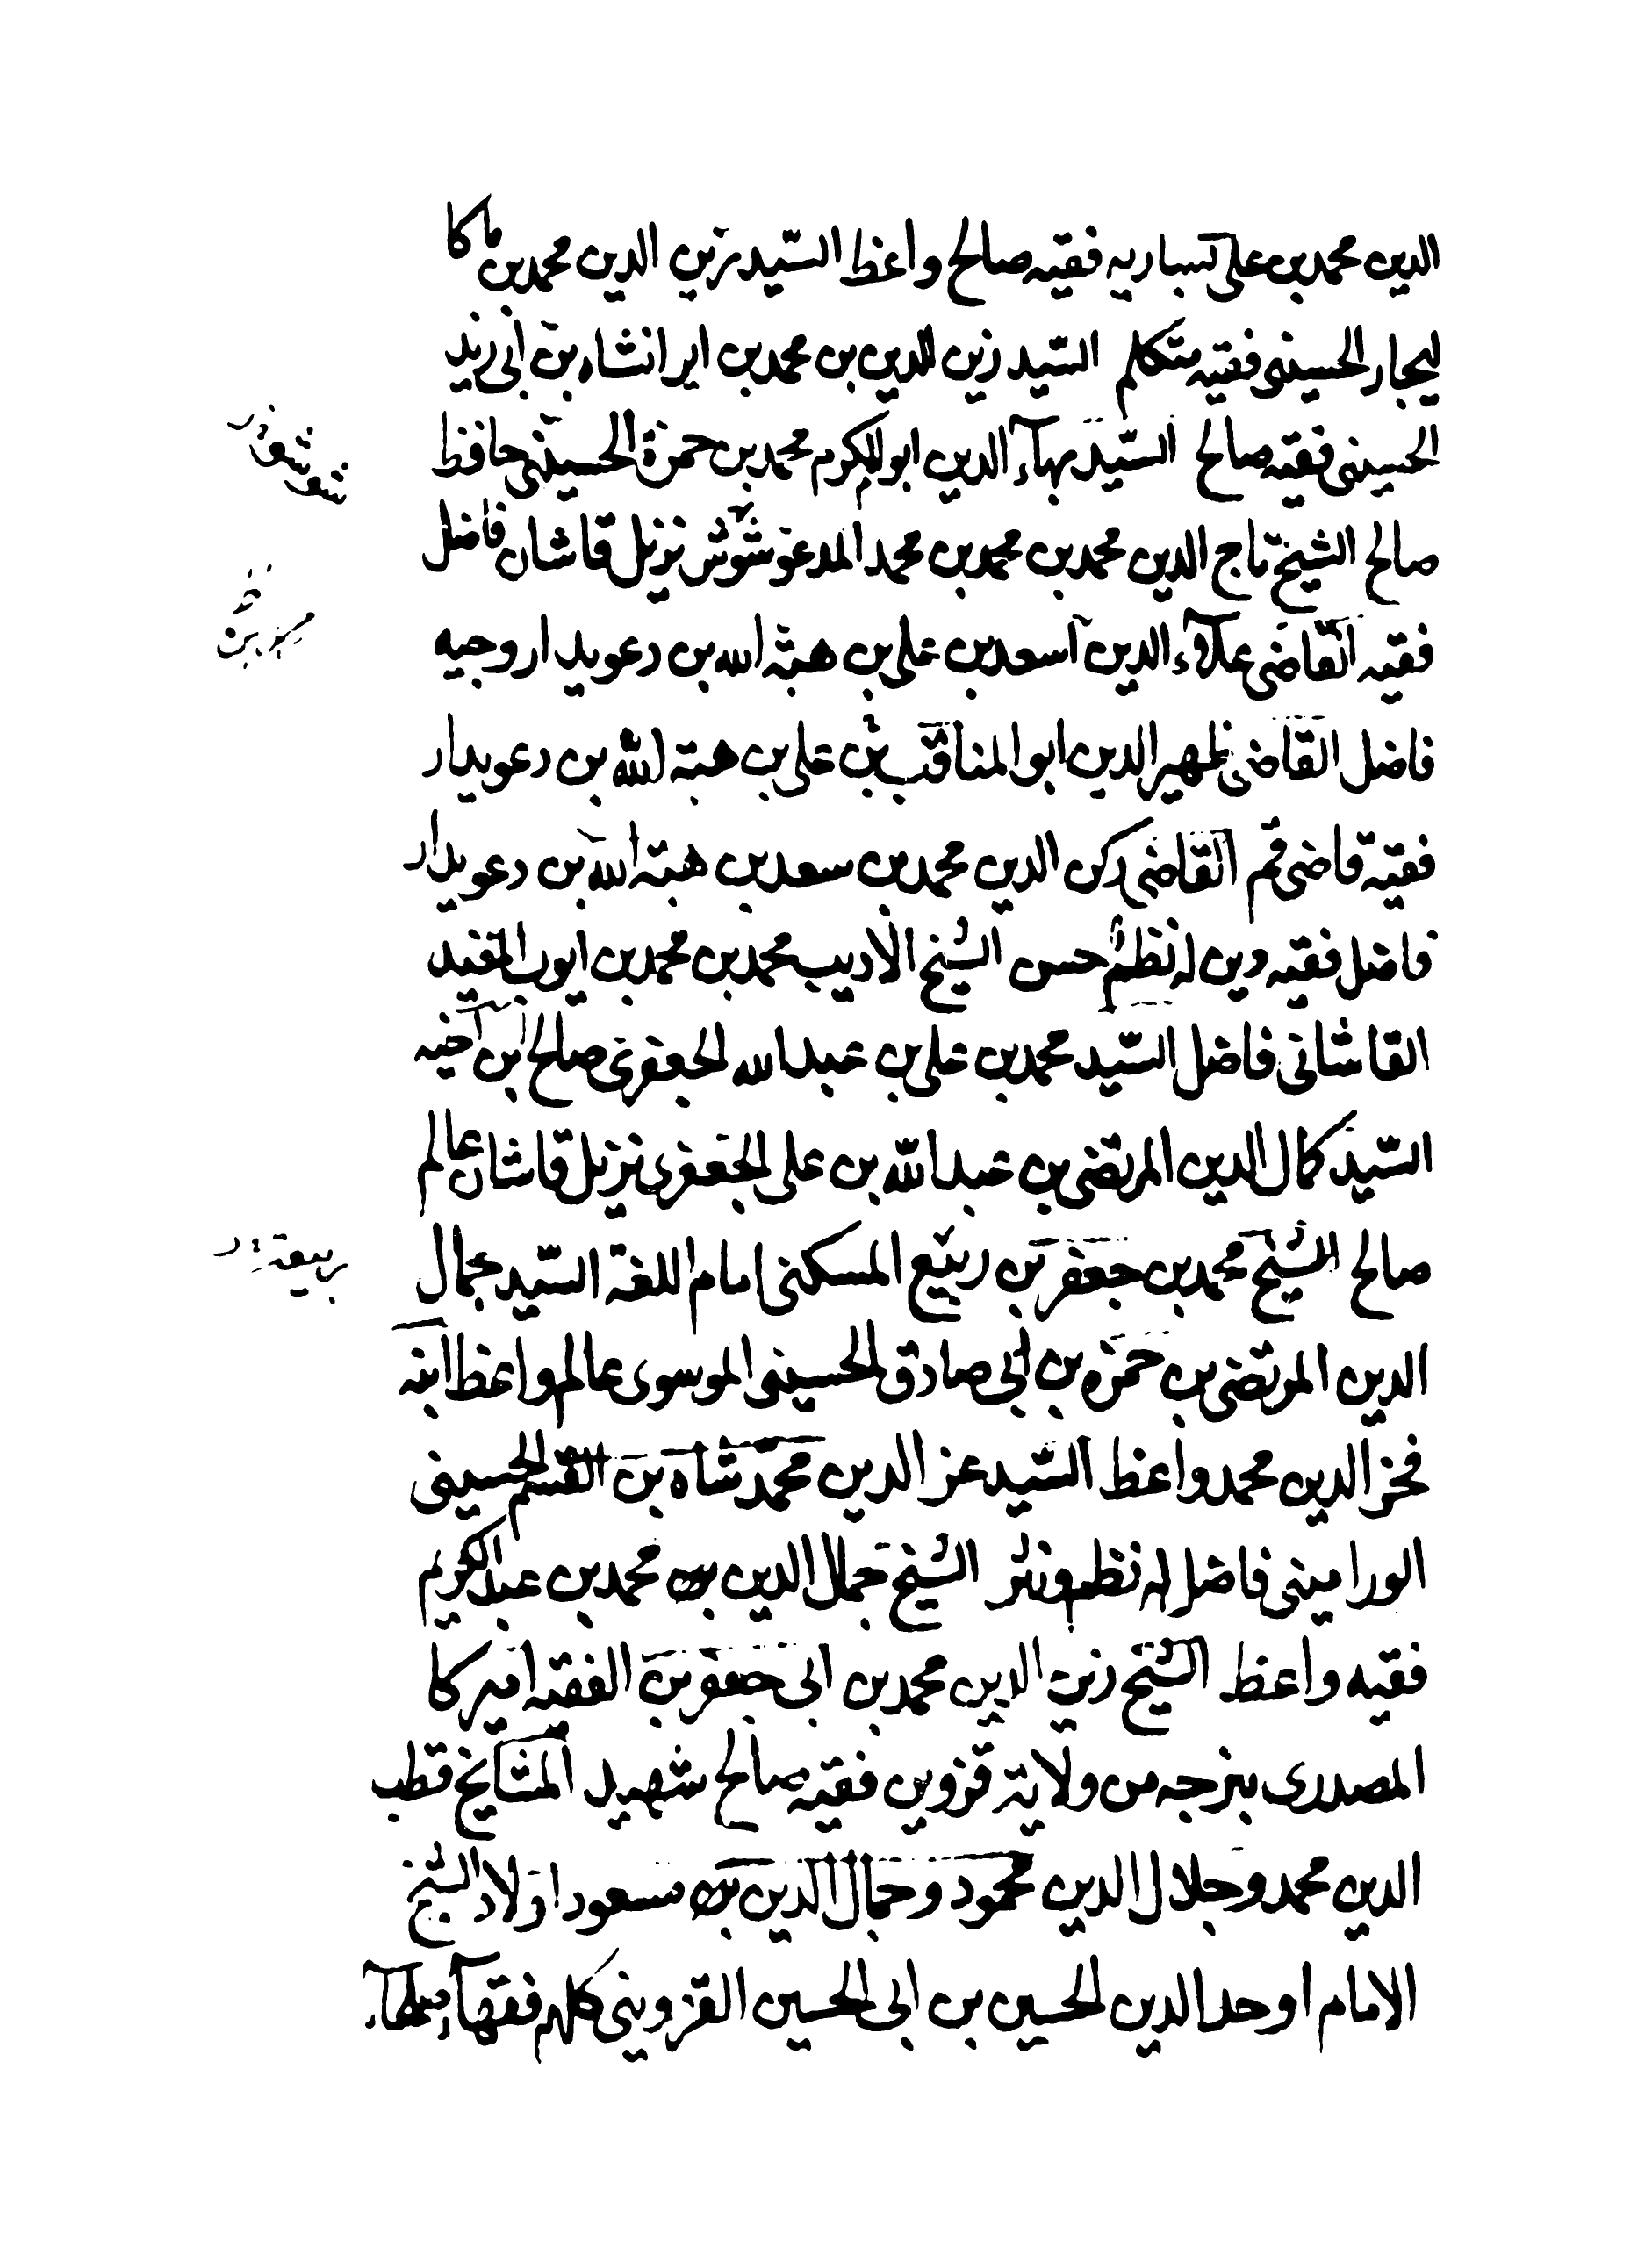 الدين محمد بن على كسباريه فقيه صالح واعظ السيّد زين الدين محمد بن ماكا
ليجار الحسينى فقيه متكلم السيّد زين الدين بن محمد بن ايرانشاه بن ابى زيد
الحسينى فقيه صالح السيّد بهآء الدين ابو المكرم محمد بن حمزة الحسينى حافظ
صالح الشيخ تاج الدين محمد بن محمد بن محمد المدعو شوش نزيل قاشان فاضل
فقيه القاضى علآء الدين اسعد بن على بن هبة الله بن دعويدار وجيه
فاضل القاضى ظهير الدين ابو المناقب بن على بن هبة الله بن دعويدار
فقيه قاضى قم القاضى ركن الدين محمد بن سعد بن هبة الله بن دعويدار
فاضل فقيه دين له نظم حسن الشيخ الاديب محمد بن محمد بن ايوب المفيد
القاشانى فاضل السيّد محمد بن على بن عبد الله الجعفرى صالح ابن اخيه
السيّد كمال الدين المرتضى بن عبد الله بن على الجعفرى نزيل قاشان عالم
صالح الشيخ محمد بن جعفر بن ربيع المسكنى امام اللغة السيّد جمال
ربيعة
الدين المرتضى بن حمزه بن ابى صادق الحسينى الموسوى عالم واعظ ابنه
فخر الدين محمد واعظ السيّد عز الدين محمد شاه بن القسم الحسينى
الورامينى فاضل له نظم ونثر الشيخ جمال الدين محمد بن عبد الكريم
فقيه واعظ الشيخ زين الدين محمد بن ابى جعفر بن الفقيه اميركا
المصدرى بنرجه من ولاية قزوين فقيه صالح شهيد المشايخ قطب
الدين محمد وجلال الدين محمود وجمال الدين مسعود اولاد الشيخ
الامام اوحد الدين الحسين بن ابى الحسين القزوينى كلهم فقهآء